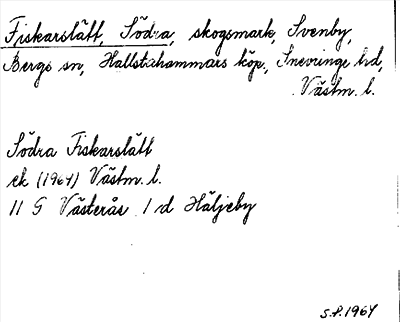 Fiskarslått, Södra, skogsmark, Svenby,
Bergs sn, Hallstahammars köp., Snevringe hd,
Västm. l.
Södra Fiskarslått
ek (1964) Västm. l.
11 G Västerås 1 d Häljeby
S.P. 1964